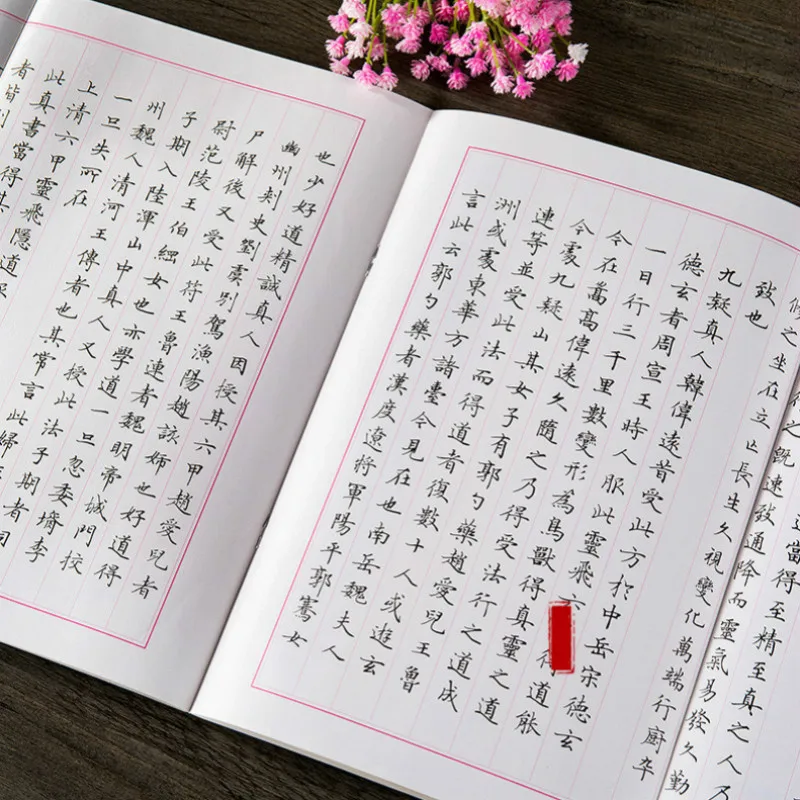 道當得至精至真之人乃
之既速致通降而靈氣易發久勤
脩之坐在立亡長生久視變化萬端行廚卒
致也
九疑真人韓偉遠昔受此方於中岳宋德玄
德玄者周宣王時人服此靈飛六得道能
一日行三千里數變形為鳥獸得真靈之道
今在嵩高偉遠久隨之乃得受法行之道成
今處九疑山其女子有郭勺藥趙愛兒王魯
連等並受此法而得道者復數十人或遊玄
洲或處東華方諸臺今見在也南岳魏夫人
言此云郭勺藥者漢度遼將軍陽平郭騫女
也少好道精誠真人因授其六甲趙愛兒者
幽州刾史劉虞別駕漁陽趙該姊也好道得
尸解後又受此符王魯連者魏明帝城門挍
尉范陵王伯綱女也亦學道一旦忽委壻李
子期入陸渾山中真人又授此法子期者司
州魏人清河王傳者也其常言此婦
一旦失所在
上清六甲靈飛隱道服
此真書當得其
者皆列